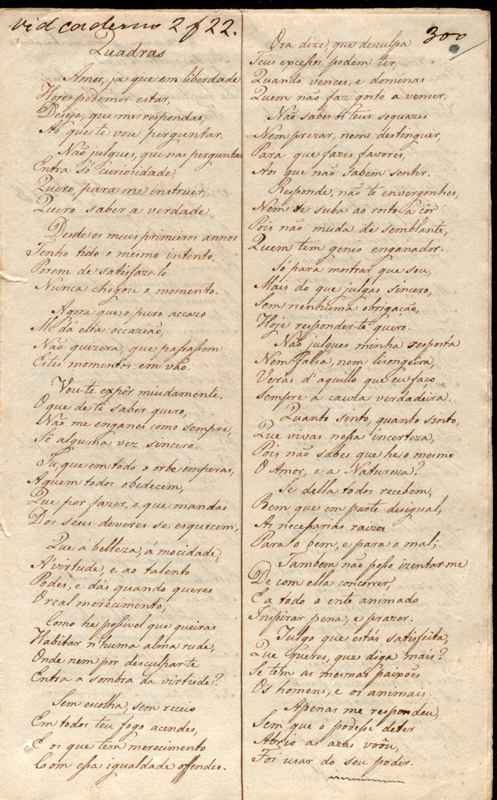 vid caderno 2 f 22.
300
Quadras
Amor, ja que em liberdade
Hoje podemos estar,
Desejo, que me respondas,
Ao que te vou perguntar.
Não julgues, que nas perguntas
Entra só curiosidade,
Quero para me instruir,
Quero saber a verdade.
Desde os meus primeiros annos
Tenho tido o mesmo intento,
Porem de satisfazelo
Nunca chegou o momento.
Agora que o puro accazo
Me dá esta occazião,
Não quizera, que passassem
Estes momentos em vão.
Vou-te expôr miudamente,
O que de te saber quero,
Não me enganes como sempre,
Sê alguma vez sincero.
Tu, que em todo o orbe imperas,
A quem todos obedecem,
Que por fazer, o que mandas
Dos seus deveres se esquecem,
Que á belleza, á mocidade,
A virtude, e ao talento
Podes, e dás quando queres
O real merecimento,
Como he possivel que queiras
Habitar n'huma alma rude,
Onde nem por desculpar-te
Entra a sombra da virtude?
Sem escolha, sem receio
Em todos teu fogo acendes,
E os que tem merecimento
Com essa igualdade offendes.
Ora dize, que desculpa
Teus excessos podem ter,
Quando vences, e dominas
Quem não faz gosto a vencer.
Não sabes ti teus sequazes
Nem prezar, nem destinguer,
Para que fazes favores,
Aos que não sabem sentir.
Responde, não te envergonhes,
Nem te suba ao rosto a côr
Pois não muda de semblante,
Quem tem genio enganador.
Só para mostrar que sou,
Mais do que julgas sincero,
Sem nenhuma obrigação,
Hoje responder-te quero.
Não julgues minha resposta
Nem falsa, nem lisongeira,
Veras d'aquillo que eu faço
Sempre a cauza verdadeira.
Quanto sinto, quanto sinto,
Que vivas nessa incerteza,
Pois não sabes que he o mesmo
O Amor, e a Natureza?
Se della todos recebem,
Bem que em parte desigual,
As necessarias raizes
Para o bem, e para o mal;
Tambem não posso izentar-me
De com ella concorrer,
E a todo o ente animado
Inspirar pena, e prazer.
Julgo que estás satisfeita,
Que queres, que diga mais?
Se tem as mesmas paixões
Os homens, e os animais.
Apenas me respondeu,
Sem que o podesse deter
Abrio as azas voôu,
Foi uzar do seu poder.